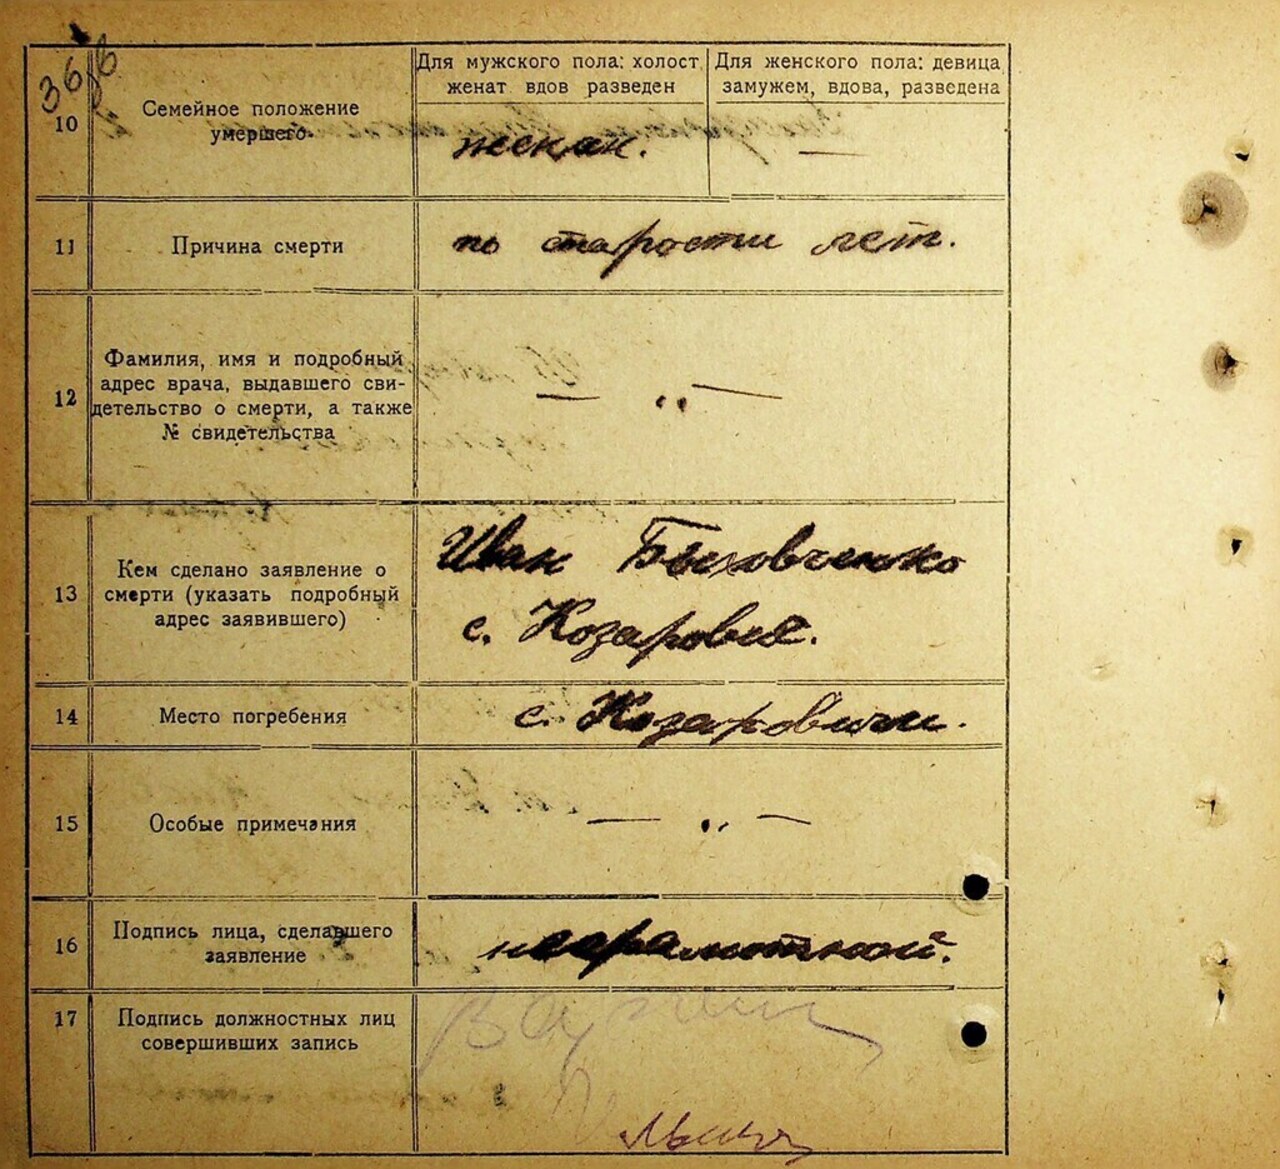 36
Для мужского пола: холост
женат вдов разведен
Для женского пола: девица
замужем, вдова, разведена
10
Семейное положение
умершего
—
11
Причина смерти
по старости лет.
12
Фамилия, имя и подробный
адрес врача, выдавшего сви-
детельство о смерти, а также
№ свидетельства
— „ —
13
Кем сделано заявление о
смерти (указать подробный
адрес заявившего)
Иван Быховченко
с. Козаровичи.
14
Место погребения
с. Козаровичи.
15
Особые примечания
— „ —
16
Подпись лица, сделавшего
заявление
неграмотной.
17
Подпись должностных лиц
совершивших запись